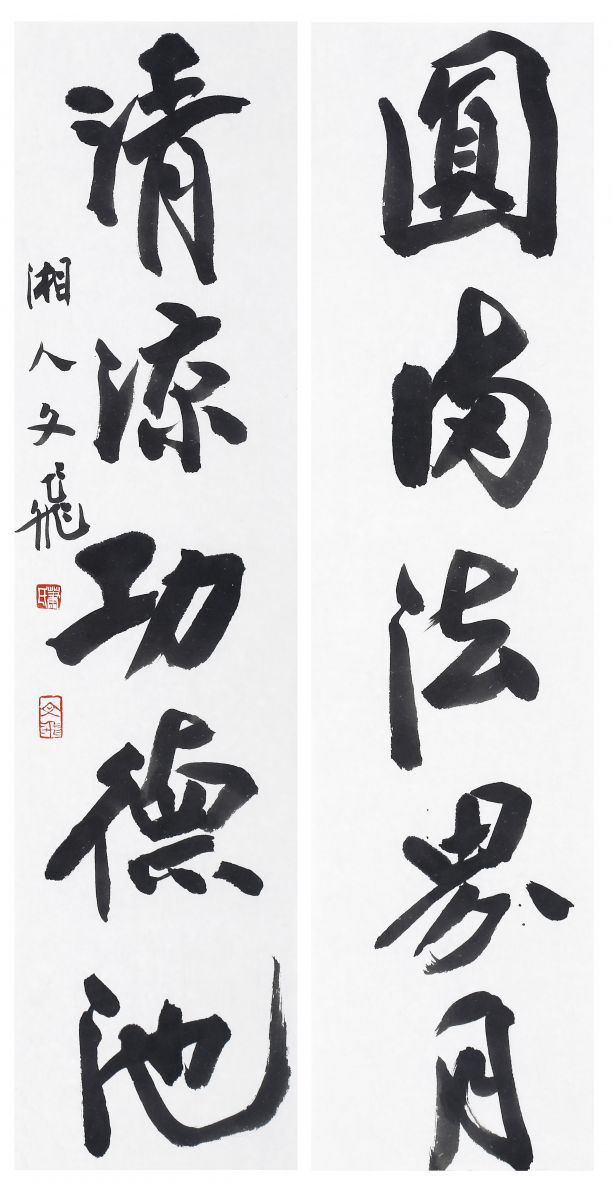 圓滿法界月
清涼功德池
湘人文飛